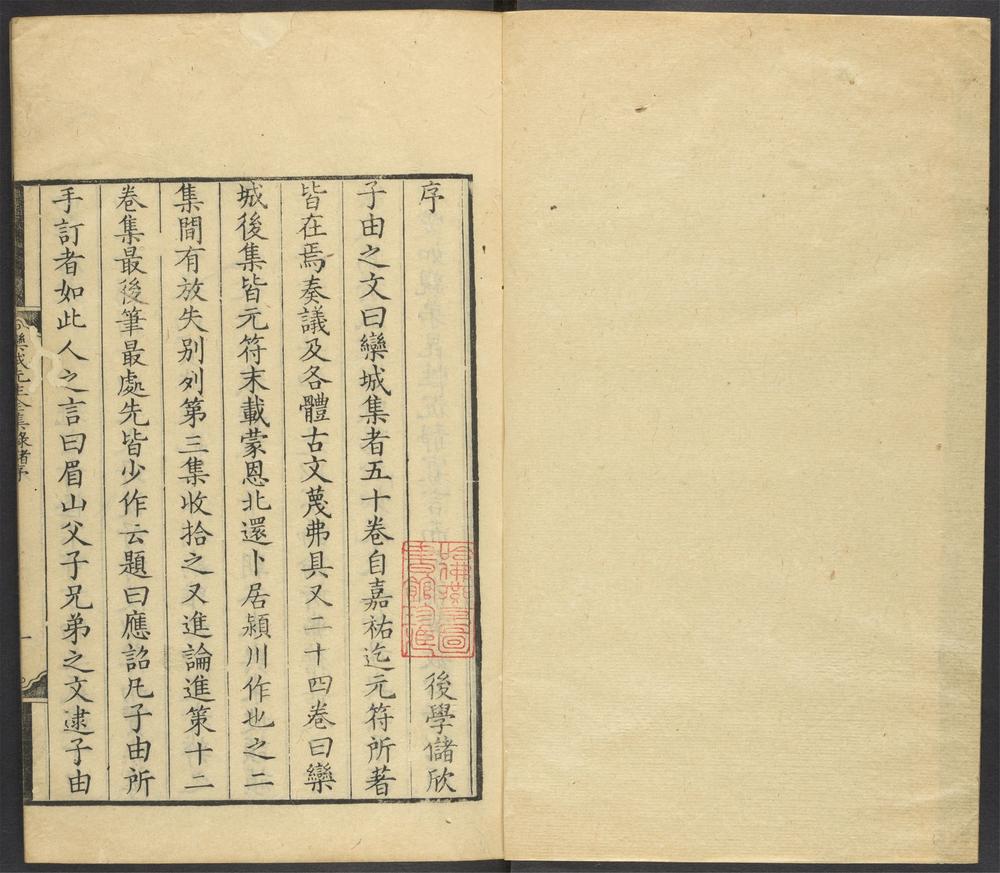 序
後學儲欣
子由之文曰欒城集者五十卷自嘉祐迄元符所著
皆在焉奏議及各體古文蔑弗具又二十四卷曰欒
城後集皆元符末載蒙恩北還卜居潁川作也之二
集間有放失別列第三集收拾之又進論進策十二
卷集最後筆最處先皆少作云題曰應詔凡子由所
手訂者如此人之言曰眉山父子兄弟之文逮子由
欒城先生全集錄 序
一
哈佛燕京圖
書館珍藏